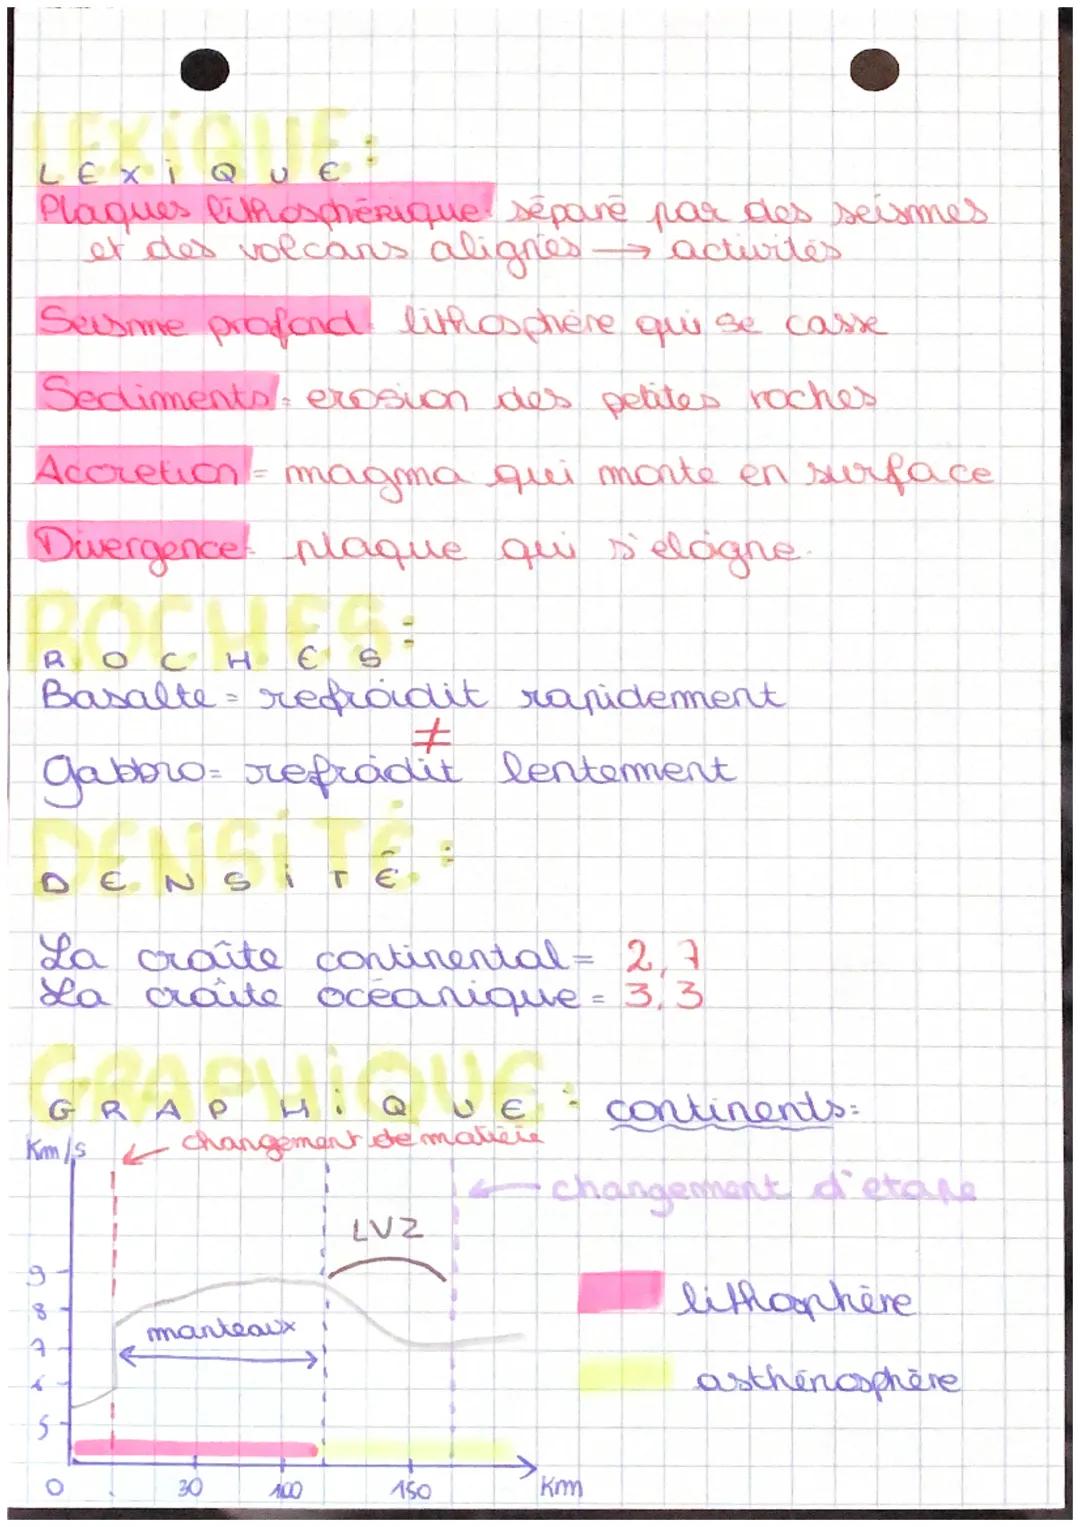 LEXIQUE:
LEXIQUE
Plaques lithosphérique: séparé par des seismes
et des volcans alignés → activités
Seisme profond: lithosphère qui se casse
Sediments = erosion des petites roches
Accretion = magma qui monte en surface
Divergence: plaque qui s'eloigne.
ROCHES:
ROCHES
Basalte = refroidit rapidement
≠
Gabbro = refroidit lentement
DENSITÉ:
DENSITÉ
La croûte continental = 2,7
La croûte océanique = 3,3
GRAPHIQUE:
GRAPHIQUE continents:
Km/s
changement de matière
changement d'etape
LVZ
9
8
manteaux
7
6
5
lithosphère
asthénosphère
0 30 100 150 Km